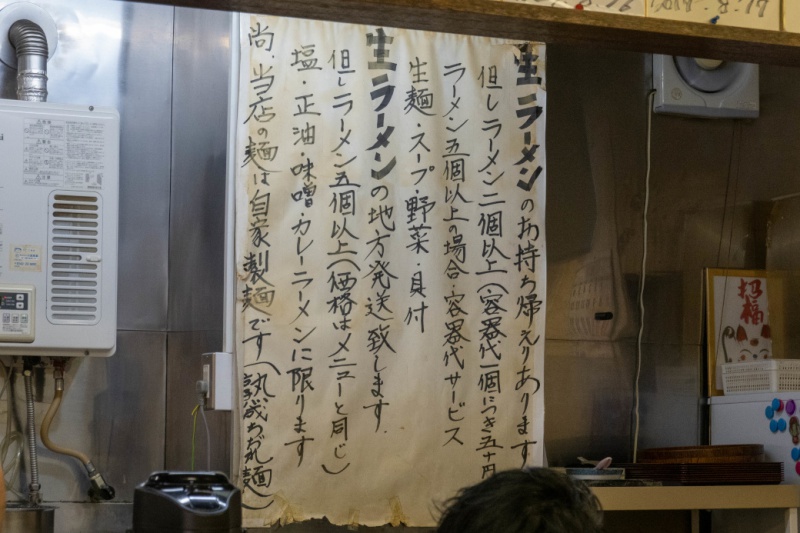 生ラーメンのお持ち帰えりあります
但しラーメン二個以上(容器代一個につき五十円
ラーメン五個以上の場合・容器代サービス
生麺・スープ・野菜・具付
生ラーメンの地方発送致します.
但しラーメン五個以上(価格はメニューと同じ)
塩・正油・味噌・カレーラーメンに限ります
尚、当店の麺は自家製麺です(熟成ちぢれ麺)
招福